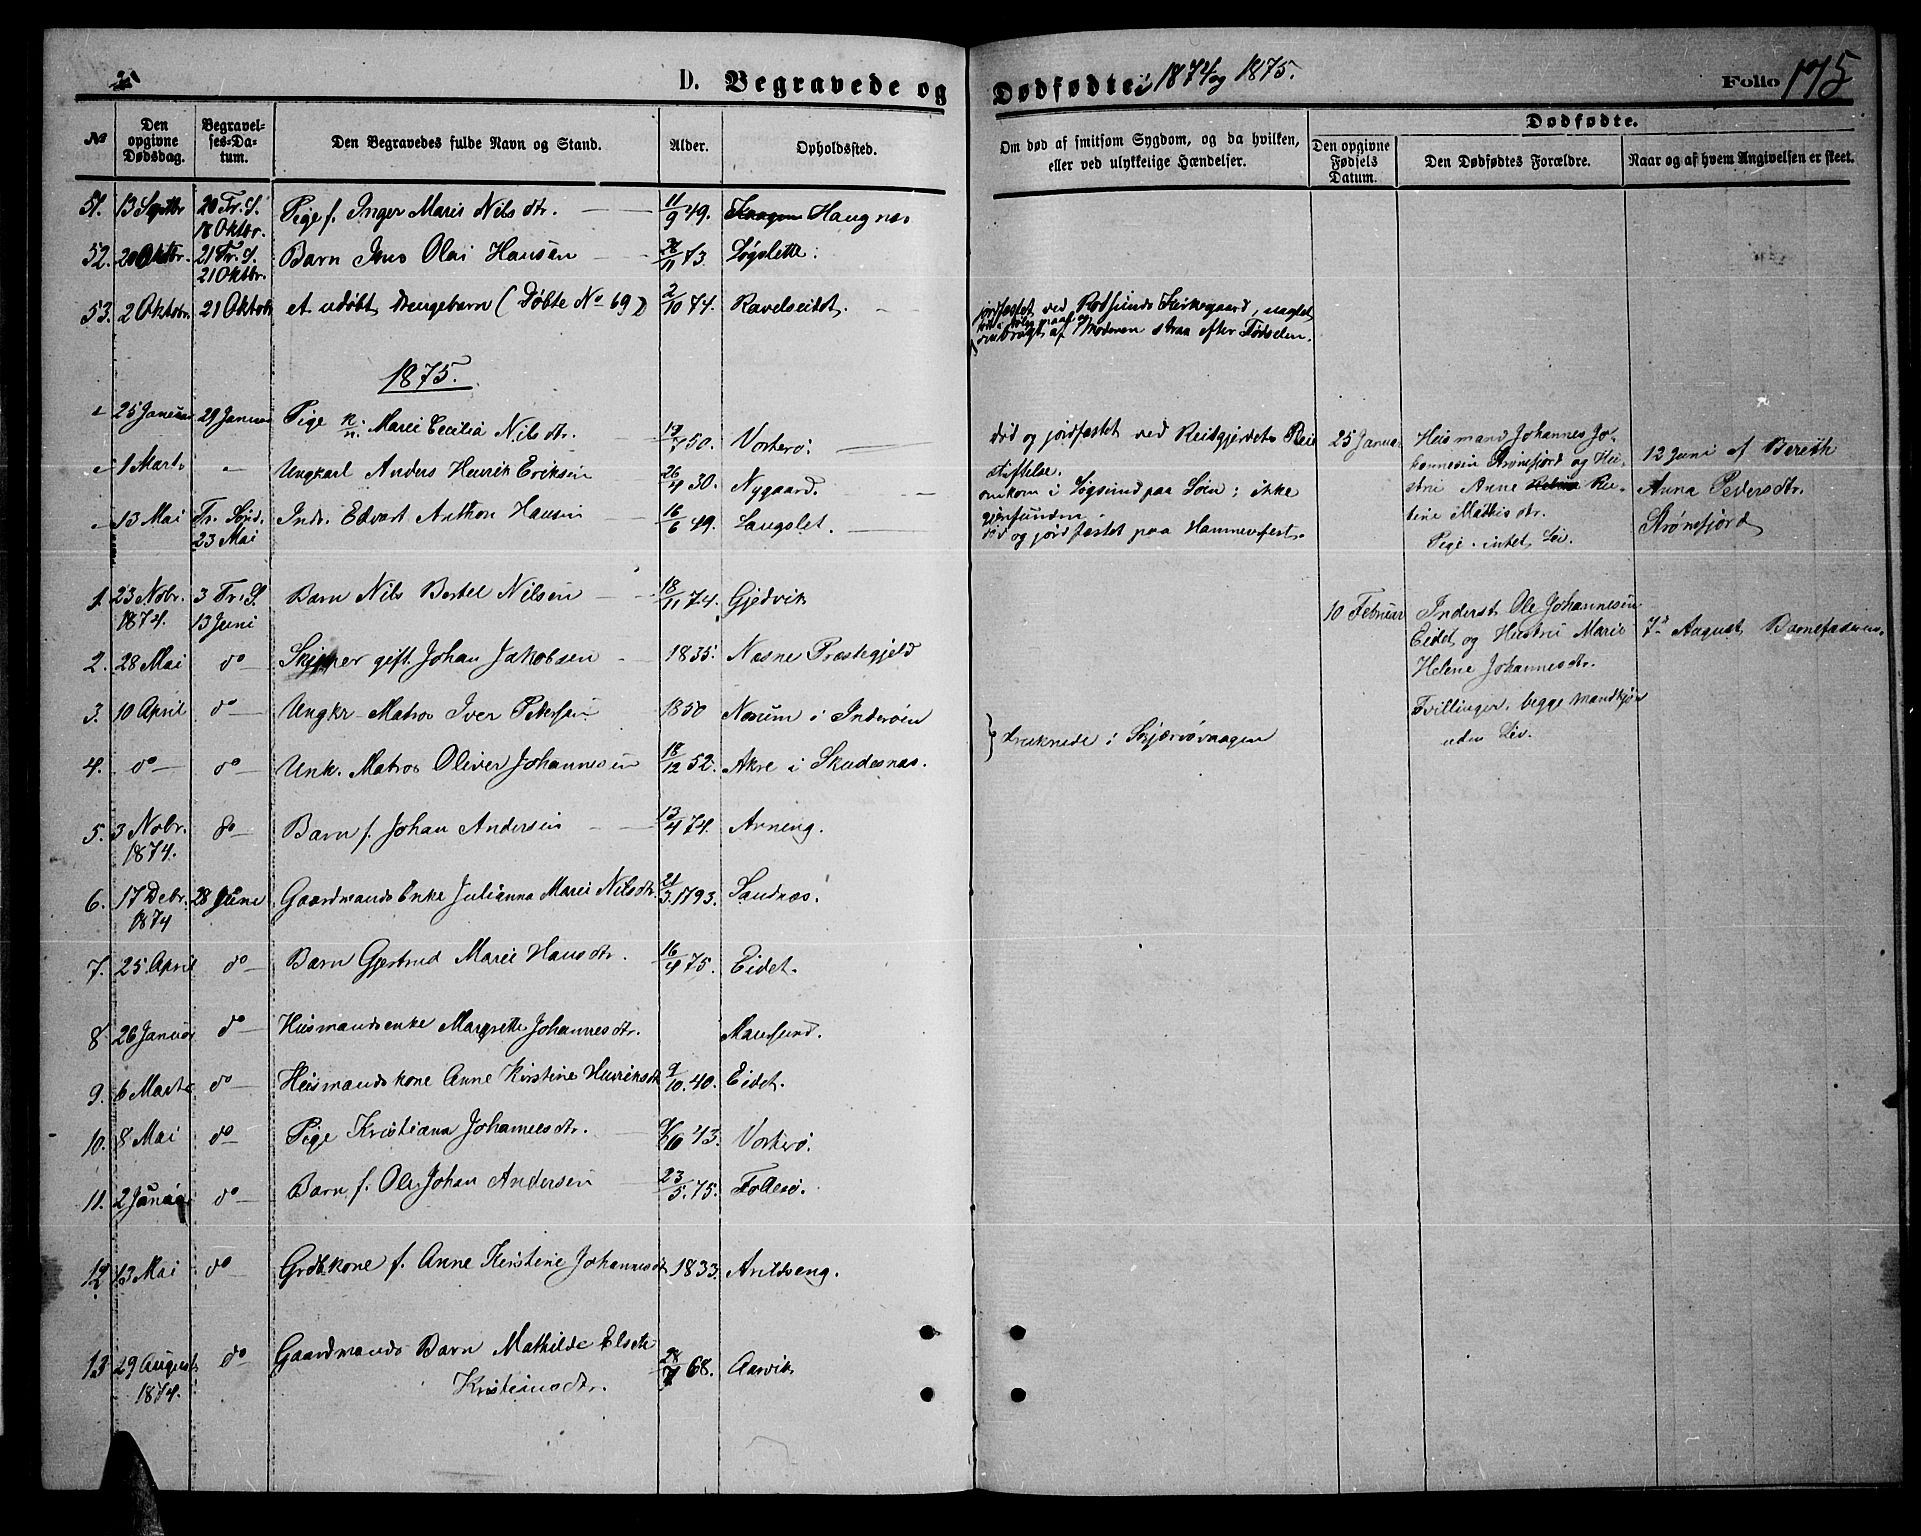 D. Begravede og Dødfødte i 1874 og 1875. Folio 175
No
Den opgivne Dødsdag.
Begravelses-Datum.
Den Begravedes fulde Navn og Stand.
Alder.
Opholdssted.
Om død af smitsom Sygdom, og da hvilken, eller ved ulykkelige Hændelser.
Dødfødte.
Den opgivne Fødsels Datum.
Den Dødfødtes Forældre.
Naar og af hvem Angivelsen er skeet.
51. 13 Septbr 20 Tr. S. 18 Oktbr. Pige f. Inger Marie Nilsdtr. 11/9 49. Haugnæs
52. 20 Oktbr. 21 Tr. S. 21 Oktbr. Barn Jens Olai Hansen 28/11 73. Løgslette.
53. 2 Oktbr. 21 Oktobr et udøbt Drengebarn (Døbte No 69) 2/10 74. Ravelseidet.
jordfæstet ved Rotsunds Kirkegaard,
af Moderen strax efter Fødselen.
1875.
25 Januar 29 Januar Pige Marie Cecilia Nilsdtr. 19/7 50. Vorterø.
død og jordfæstet ved Reitgjerdets Pleiestiftelse.
1 Marts " Ungkarl Anders Henrik Eriksen 26/4 30. Nygaard.
omkom i Løgsund paa Søen; ikke gjenfunden.
13 Mai Tr. Sønd. 23 Mai Indr. Edvart Anthon Hansen 16/6 49. Langslet.
død og jordfæstet paa Hammerfest.
25 Januar
Husmand Johannes Jo-
hannesen Strømfjord og Hu-
stru Anne
Mathisdtr.
Pige intet Liv.
12 Juni af Bereth
Anna Pedersdtr.
Strømfjord
1. 23 Nobr. 1874. 3 Tr. S. 13 Juni Barn Nils Bertel Nilsen 18/11 74. Gjedvik
2. 28 Mai do Skipper gift Johan Jakobsen 1835. Næsne Præstegjeld
3. 10 April do Ungkr Matros Iver Petersen 1850 Næsum i Inderøen
4. do do Unk. Matros Oliver Johannesen 18/12 52. Akre i Skudesnæs.
druknede i Skjærvøvaagen
10 Februar
Inderst Ole Johannesen
Eidet og Hustru Marie
Helene Johannesdtr.
Tvillinger, begge Mandkjøn
uden Liv.
7d August Barnefaderen.
5. 3 Nobr. 1874. do Barn f. Johan Andersen 13/4 74. Arneng.
6. 17 Debr. 1874 28 Juni Gaardmands Enke Julianna Marie Nilsdtr. 21/3 1793. Sandnæs.
7. 25 April do Barn Gjertrud Marie Hansdtr. 16/4 75. Eidet.
8. 26 Januar do Husmandsenke Margrethe Johannesdtr. Maursund.
9. 6 Marts do Husmandskone Anne Kirstine Henriksdtr 9/10. 40. Eidet.
10. 8 Mai do Pige Kristiana Johannesdtr. 43. Vorterø.
11. 2 Januar do Barn f. Ole Johan Andersen 23/5. 75. Follesø.
12. 13 Mai do Grdbkone f. Anne Kirstine Johannesdtr 1833.
13 29 August 1874. do Gaardmands Barn Mathilde
Kristiansdtr. 28/7 68. Aarvik